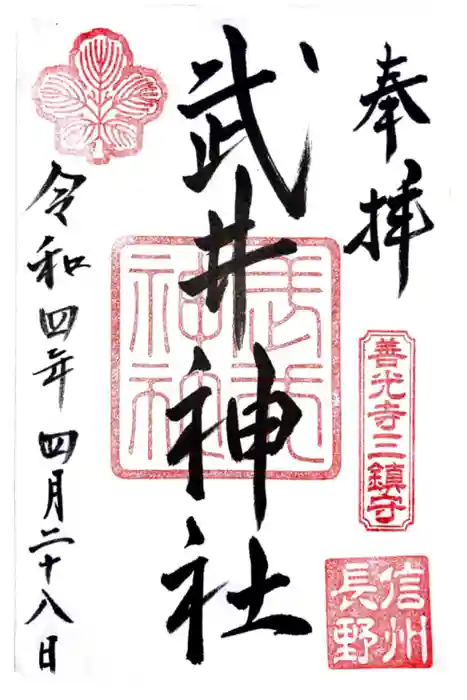 奉拝
善光寺三鎮守
信州
長野
武井神社
武井
神社
令和四年四月二十八日